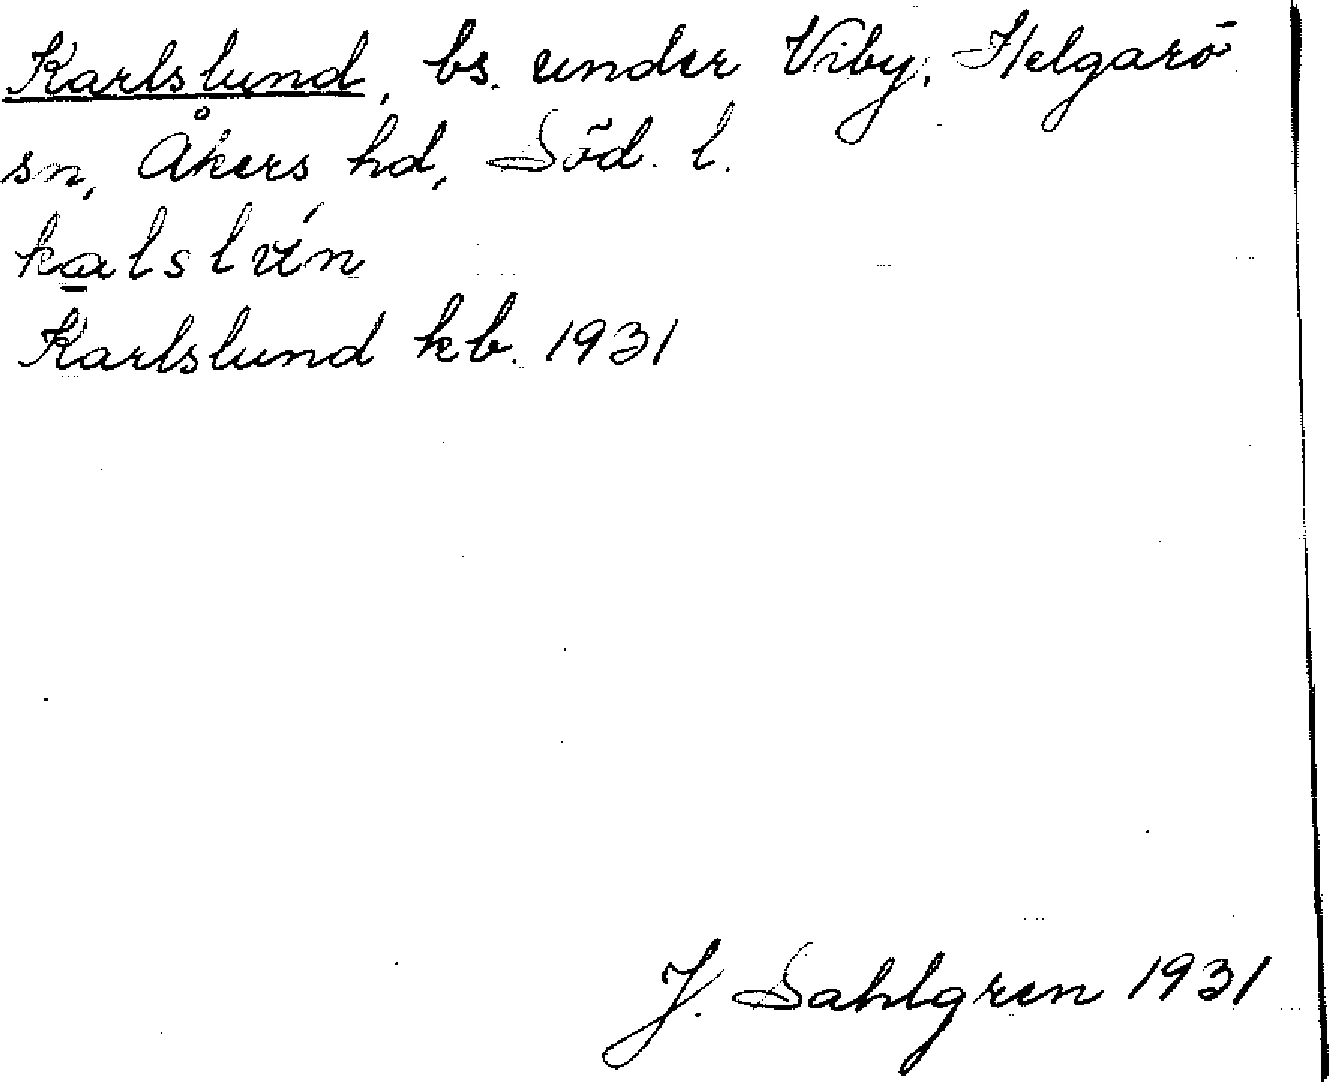 Karlslund, bs. under Viby, Helgarö
sn, Åkers hd, Söd. l.
Karlslund kb. 1931
J. Sahlgren 1931